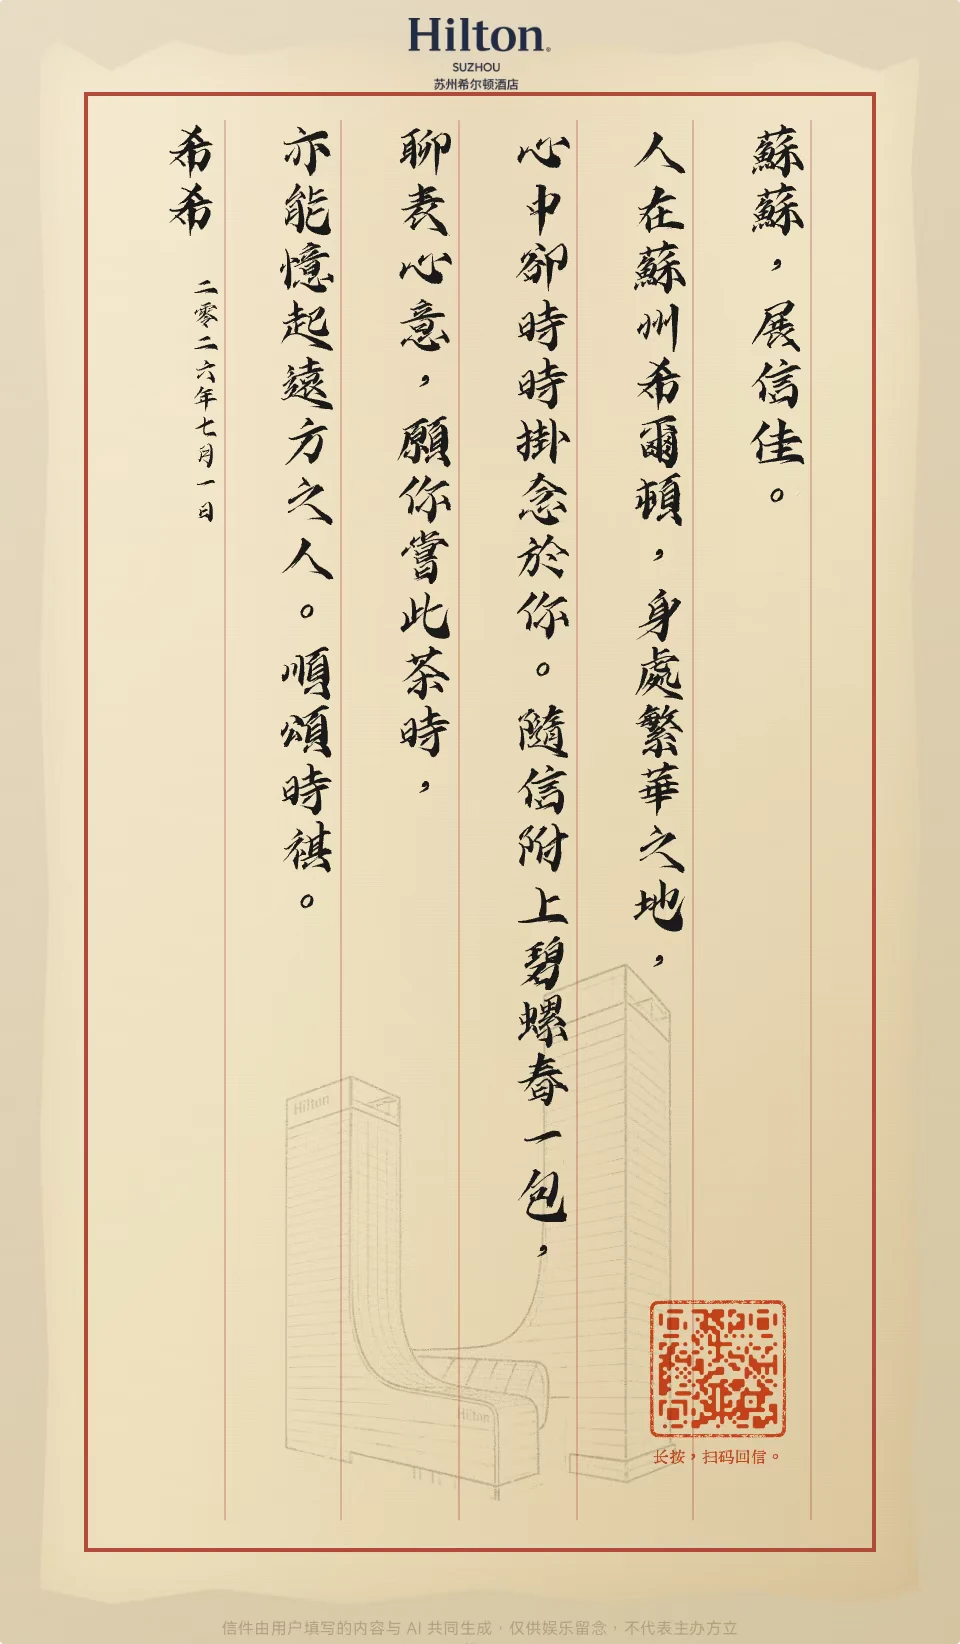 Hilton
SUZHOU
苏州希尔顿酒店
蘇蘇，展信佳。
人在蘇州希爾頓，身處繁華之地，
心中卻時時掛念於你。隨信附上碧螺春一包，
聊表心意，願你嘗此茶時，
亦能憶起遠方之人。順頌時祺。
希希
二零二六年七月一日
Hilton
Hilton
长按，扫码回信。
信件由用户填写的内容与 AI 共同生成，仅供娱乐留念，不代表主办方立